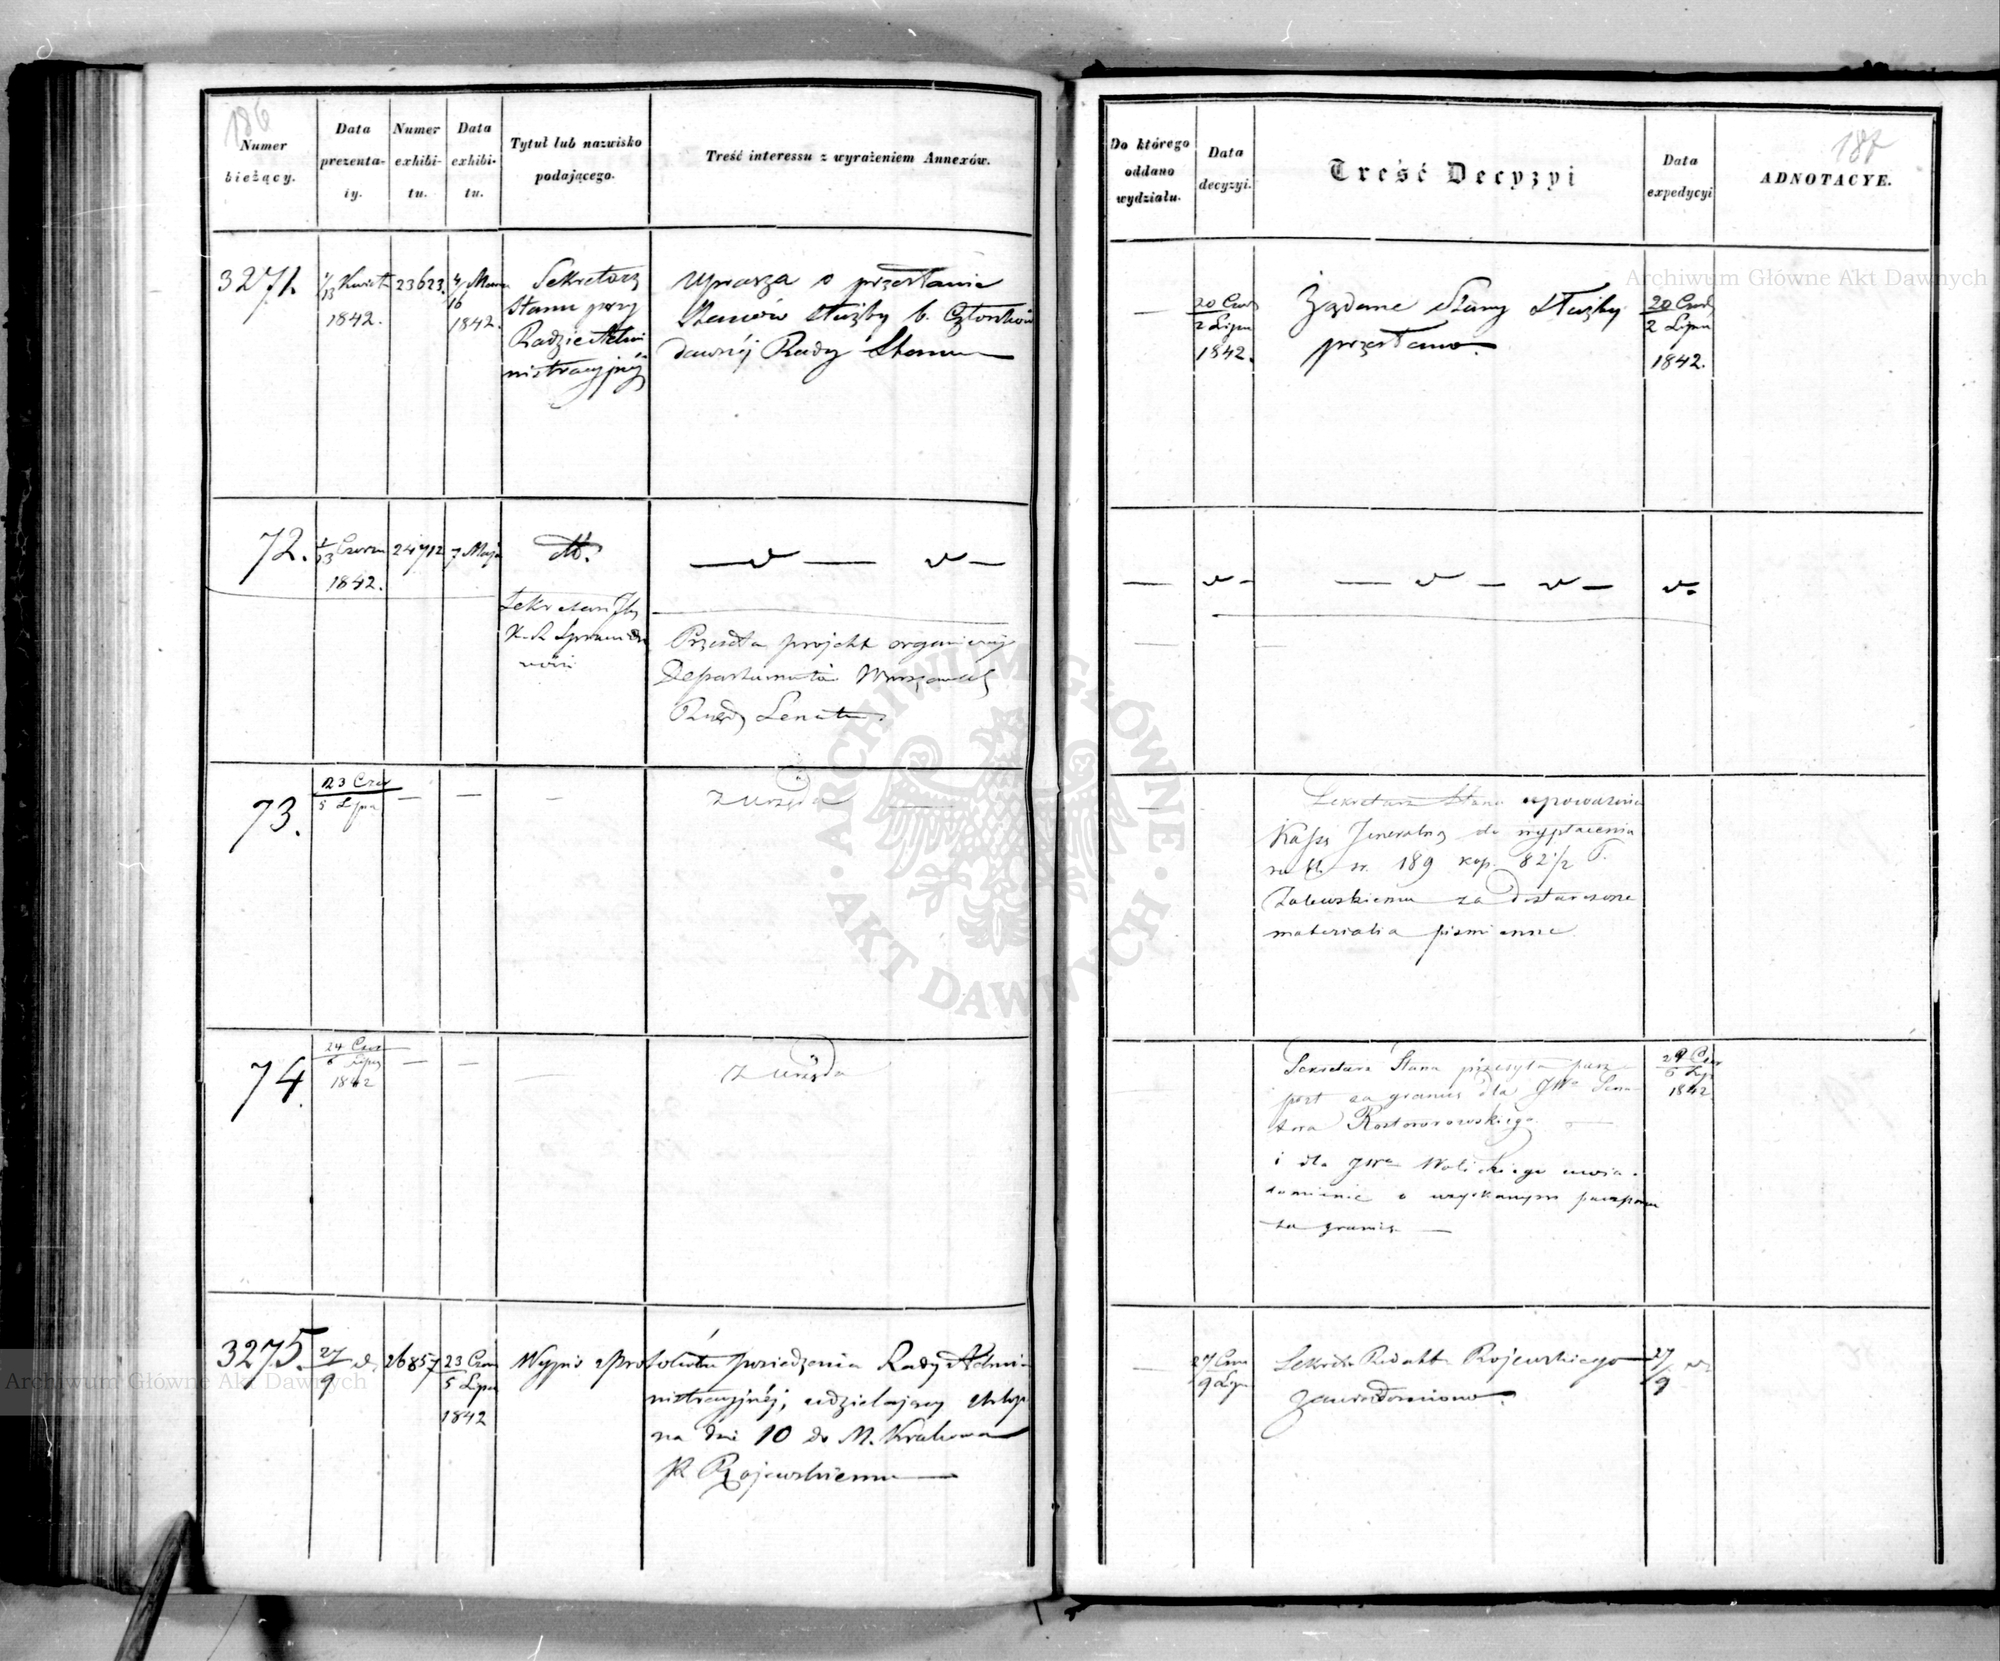 186
Numer bieżący.
Data prezenta-iy.
Numer exhibi-tu.
Data exhibi-tu.
Tytuł lub nazwisko podającego.
Treść interessu z wyrażeniem Annexów.
3271.
1842.
23623.
16
1842.
Sekretarz
Stanu przy
Radzie Admi
nistracyjnej
Uprasza o przesłanie
Stanów służby b. Członków
dawnéj Rady Stanu
72.
1842.
24712
7 Maja
Przesyła projekt organizacyi
Departamentów Warszawskich
Rządz. Senatu
73.
23 Czer
5 Lipa
—
—
—
Z urzędu
74.
24 Czer
6 Lipa
1842
—
—
Z urzędu
3275.
27
9
26857
23 Czer
5 Lipa
1842
Wypis z Protokółu posiedzenia Rady Admi
nistracyjnéj, udzielający Urlop
na dni 10 do M. Krakowa
P. Rojewskiemu
187
Do którego oddano wydziału.
Data decyzyi.
Treść Decyzyi
Data expedycyi
ADNOTACYE.
—
20 Czer
2 Lipa
1842.
Żądane Stany Służby
przesłano.
20 Czer
2 Lipa
1842.
—
Sekretarz Stanu upoważnia
Kassę Jeneralną do wypłacenia
189 kop. 82 1/2 P.
Zalewskiemu za dostarczone
materialia piśmienne
Sekretarz Stanu przesyła pasz-
port za granicę dla JWo Sena
tora Rostworowskiego
i dla JWo Wolickiego uwia-
domienie o uzyskanym paszporcie
za granicę —
24 Czer
6 Lip
1842
—
27 Czer
9 Lipa
Rojewskiego
zawiadomiono.
27
9
Archiwum Główne Akt Dawnych
Archiwum Główne Akt Dawnych
ARCHIWUM GŁÓWNE · AKT DAWNYCH ·